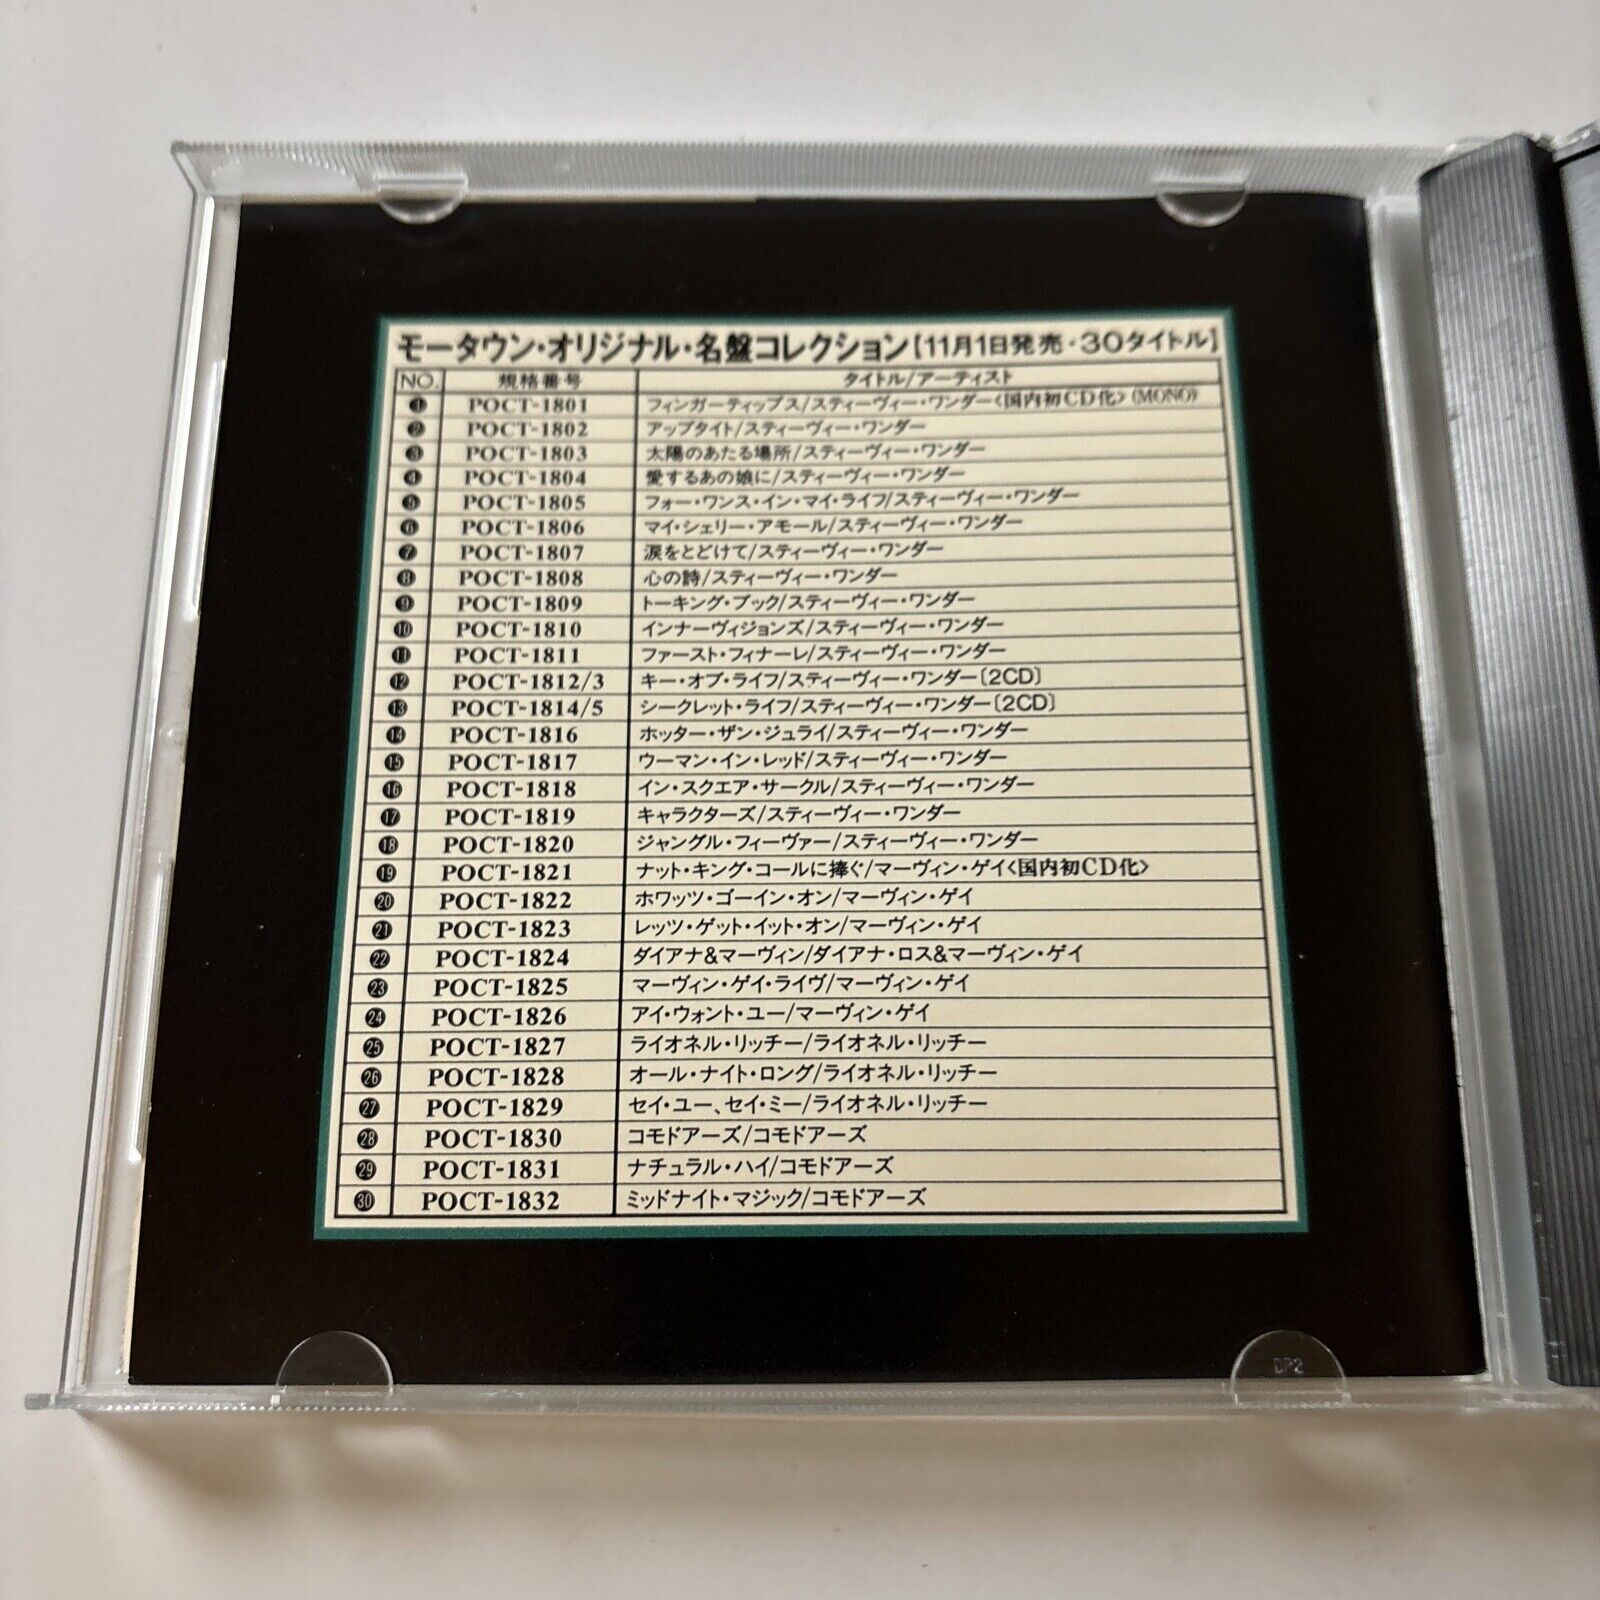 モータウン・オリジナル・名盤コレクション【11月1日発売・30タイトル】
NO. 規格番号 タイトル/アーティスト
❶ POCT-1801 フィンガーティップス/スティーヴィー・ワンダー〈国内初CD化〉(MONO)
❷ POCT-1802 アップタイト/スティーヴィー・ワンダー
❸ POCT-1803 太陽のあたる場所/スティーヴィー・ワンダー
❹ POCT-1804 愛するあの娘に/スティーヴィー・ワンダー
❺ POCT-1805 フォー・ワンス・イン・マイ・ライフ/スティーヴィー・ワンダー
❻ POCT-1806 マイ・シェリー・アモール/スティーヴィー・ワンダー
❼ POCT-1807 涙をとどけて/スティーヴィー・ワンダー
❽ POCT-1808 心の詩/スティーヴィー・ワンダー
❾ POCT-1809 トーキング・ブック/スティーヴィー・ワンダー
❿ POCT-1810 インナーヴィジョンズ/スティーヴィー・ワンダー
⓫ POCT-1811 ファースト・フィナーレ/スティーヴィー・ワンダー
⓬ POCT-1812/3 キー・オブ・ライフ/スティーヴィー・ワンダー〔2CD〕
⓭ POCT-1814/5 シークレット・ライフ/スティーヴィー・ワンダー〔2CD〕
⓮ POCT-1816 ホッター・ザン・ジュライ/スティーヴィー・ワンダー
⓯ POCT-1817 ウーマン・イン・レッド/スティーヴィー・ワンダー
⓰ POCT-1818 イン・スクエア・サークル/スティーヴィー・ワンダー
⓱ POCT-1819 キャラクターズ/スティーヴィー・ワンダー
⓲ POCT-1820 ジャングル・フィーヴァー/スティーヴィー・ワンダー
⓳ POCT-1821 ナット・キング・コールに捧ぐ/マーヴィン・ゲイ〈国内初CD化〉
⓴ POCT-1822 ホワッツ・ゴーイン・オン/マーヴィン・ゲイ
21 POCT-1823 レッツ・ゲット・イット・オン/マーヴィン・ゲイ
22 POCT-1824 ダイアナ&マーヴィン/ダイアナ・ロス&マーヴィン・ゲイ
23 POCT-1825 マーヴィン・ゲイ・ライヴ/マーヴィン・ゲイ
24 POCT-1826 アイ・ウォント・ユー/マーヴィン・ゲイ
25 POCT-1827 ライオネル・リッチー/ライオネル・リッチー
26 POCT-1828 オール・ナイト・ロング/ライオネル・リッチー
27 POCT-1829 セイ・ユー、セイ・ミー/ライオネル・リッチー
28 POCT-1830 コモドアーズ/コモドアーズ
29 POCT-1831 ナチュラル・ハイ/コモドアーズ
30 POCT-1832 ミッドナイト・マジック/コモドアーズ
DP2